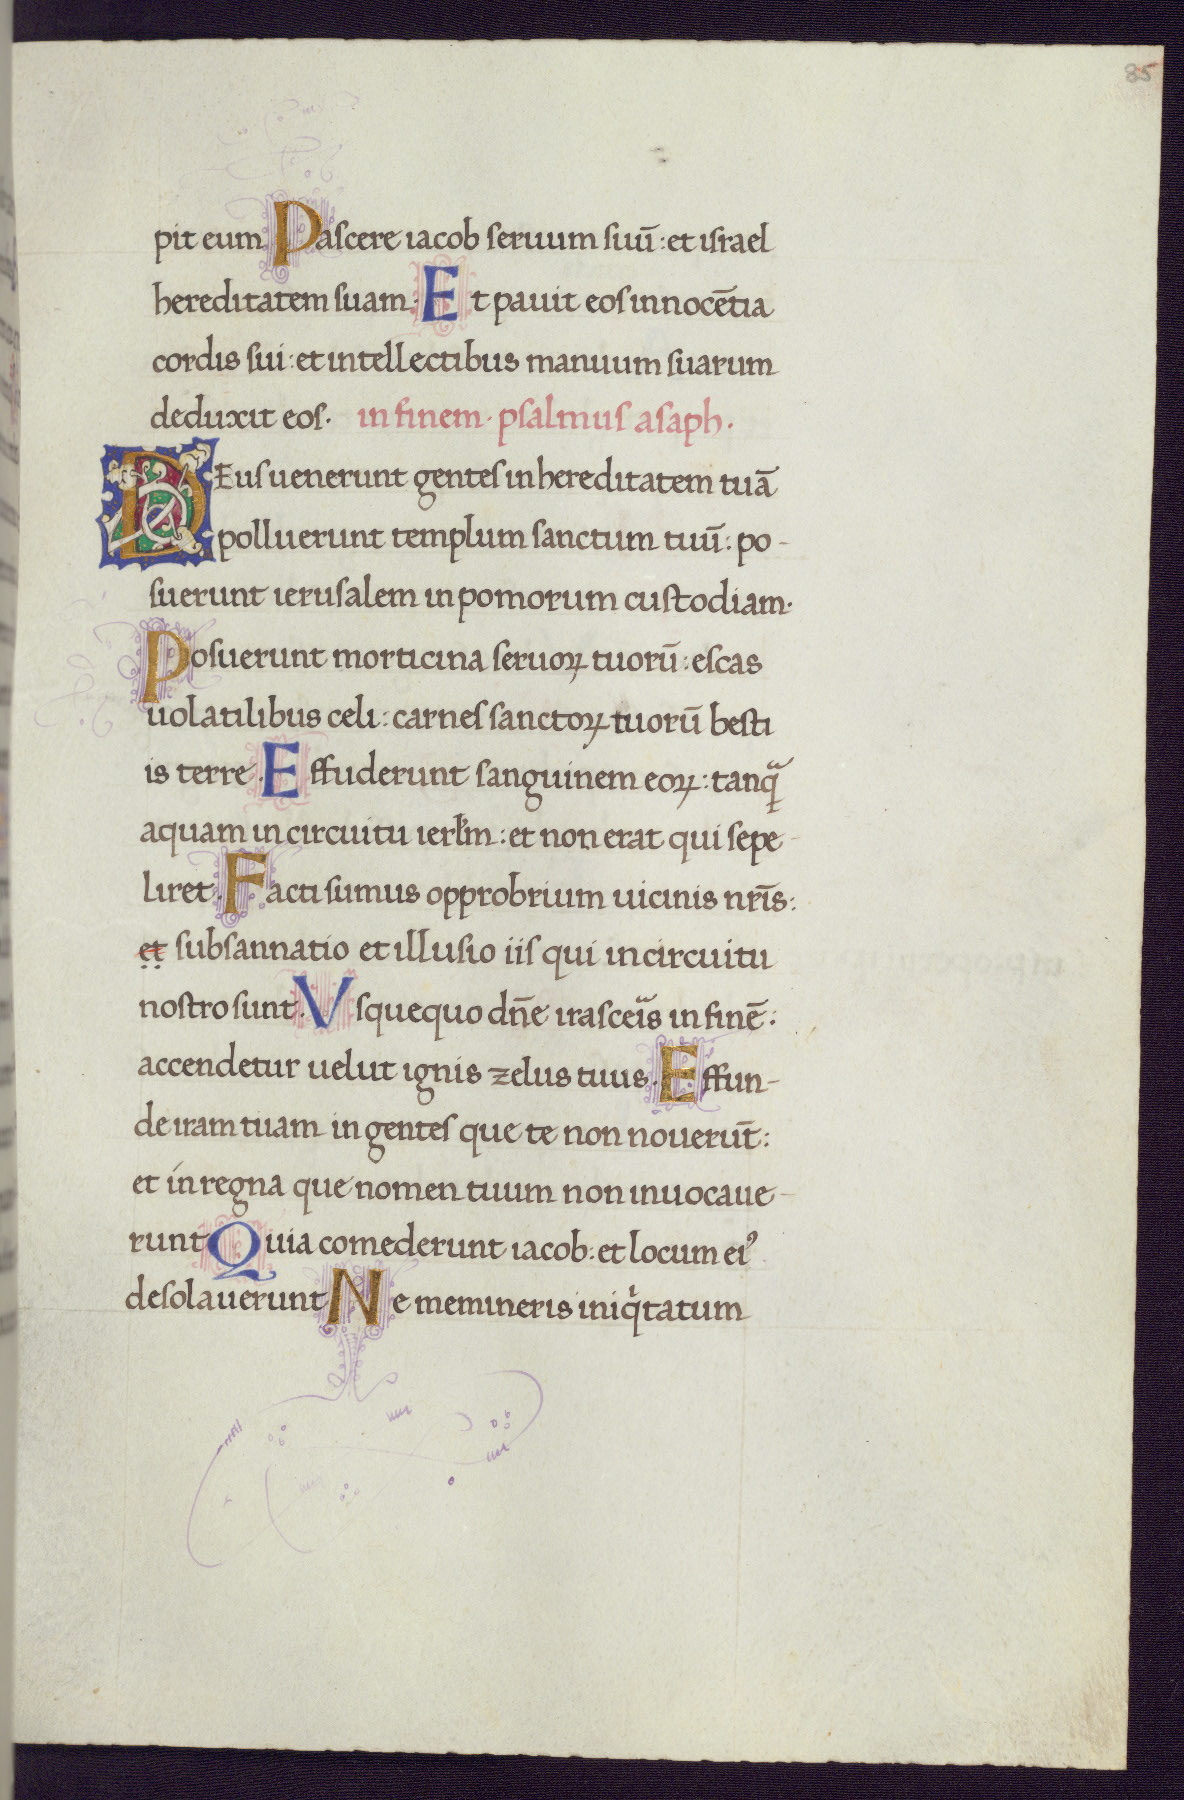 85
pit eum Pascere iacob seruum suū: et israel
hereditatem suam. Et pauit eos in nocētia
cordis sui: et intellectibus manuum suarum
deduxit eos. in finem. psalmus asaph.
DEus uenerunt gentes in hereditatem tuā
polluerunt templum sanctum tuū: po-
suerunt ierusalem in pomorum custodiam.
Posuerunt morticina seruoꝝ tuorū: escas
uolatilibus celi: carnes sanctoꝝ tuorū besti
is terre. Effuderunt sanguinem eoꝝ: tanqᷓ
aquam in circuitu ierl̄m: et non erat qui sepe-
liret. Facti sumus opprobrium uicinis nr̄is:
et subsannatio et illusio iis qui in circuitu
nostro sunt. Vsquequo dn̄e irasceᷓis in finē:
accendetur uelut ignis zelus tuus. Effun-
de iram tuam in gentes que te non nouerūt:
et in regna que nomen tuum non inuocaue-
runt Quia comederunt iacob: et locum eiꝰ
desolauerunt Ne memineris iniqͥtatum